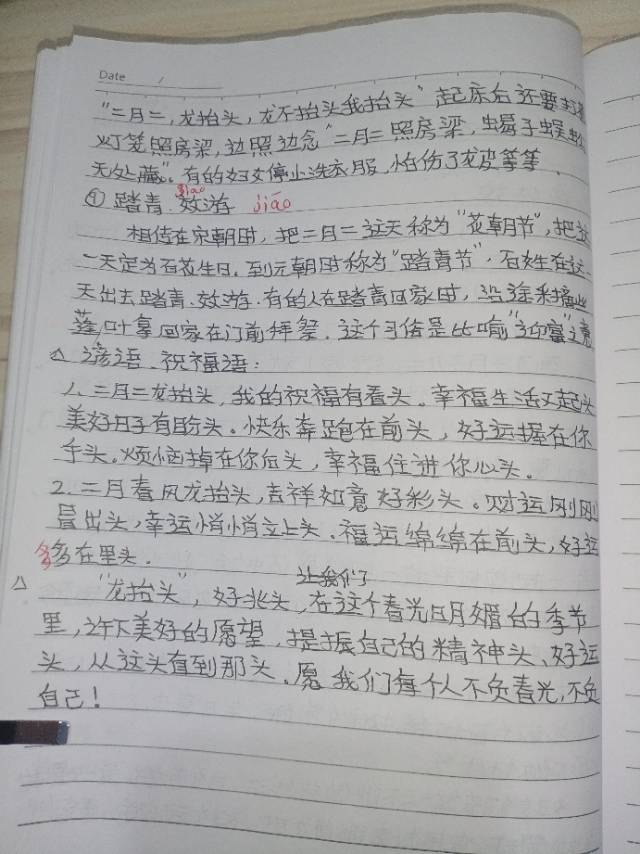 Date /
"二月二,龙抬头,龙不抬头我抬头"起床后还要打着
灯笼照房梁,边照边念"二月二照房梁,蝎子蜈蚣
无处藏"。有的妇女停止洗衣服,怕伤了龙皮等等.
jiao
④踏青.效游 jiāo
相传在宋朝时,把二月二这天称为"花朝节",把这
一天定为百花生日.到元朝时称为"踏青节".百姓在这
天出去踏青.效游.有的人在踏青回家时,沿途采摘些
蓬叶拿回家在门前拜祭.这个习俗是比喻"迎富"之意
△谚语.祝福语:
1.二月二龙抬头,我的祝福有看头.幸福生活又起头
美好日子有盼头.快乐奔跑在前头,好运握在你
手头。烦恼掉在你后头,幸福住进你心头.
2.二月春风龙抬头,吉祥如意好彩头.财运刚刚
冒出头,幸运悄悄立上头.福运绵绵在前头,好运
多多在里头.
让我们
△ "龙抬头",好兆头,在这个春光明媚的季节
里,许下美好的愿望,提振自己的精神头、好运
头,从这头直到那头.愿我们每个人不负春光,不负
自己!